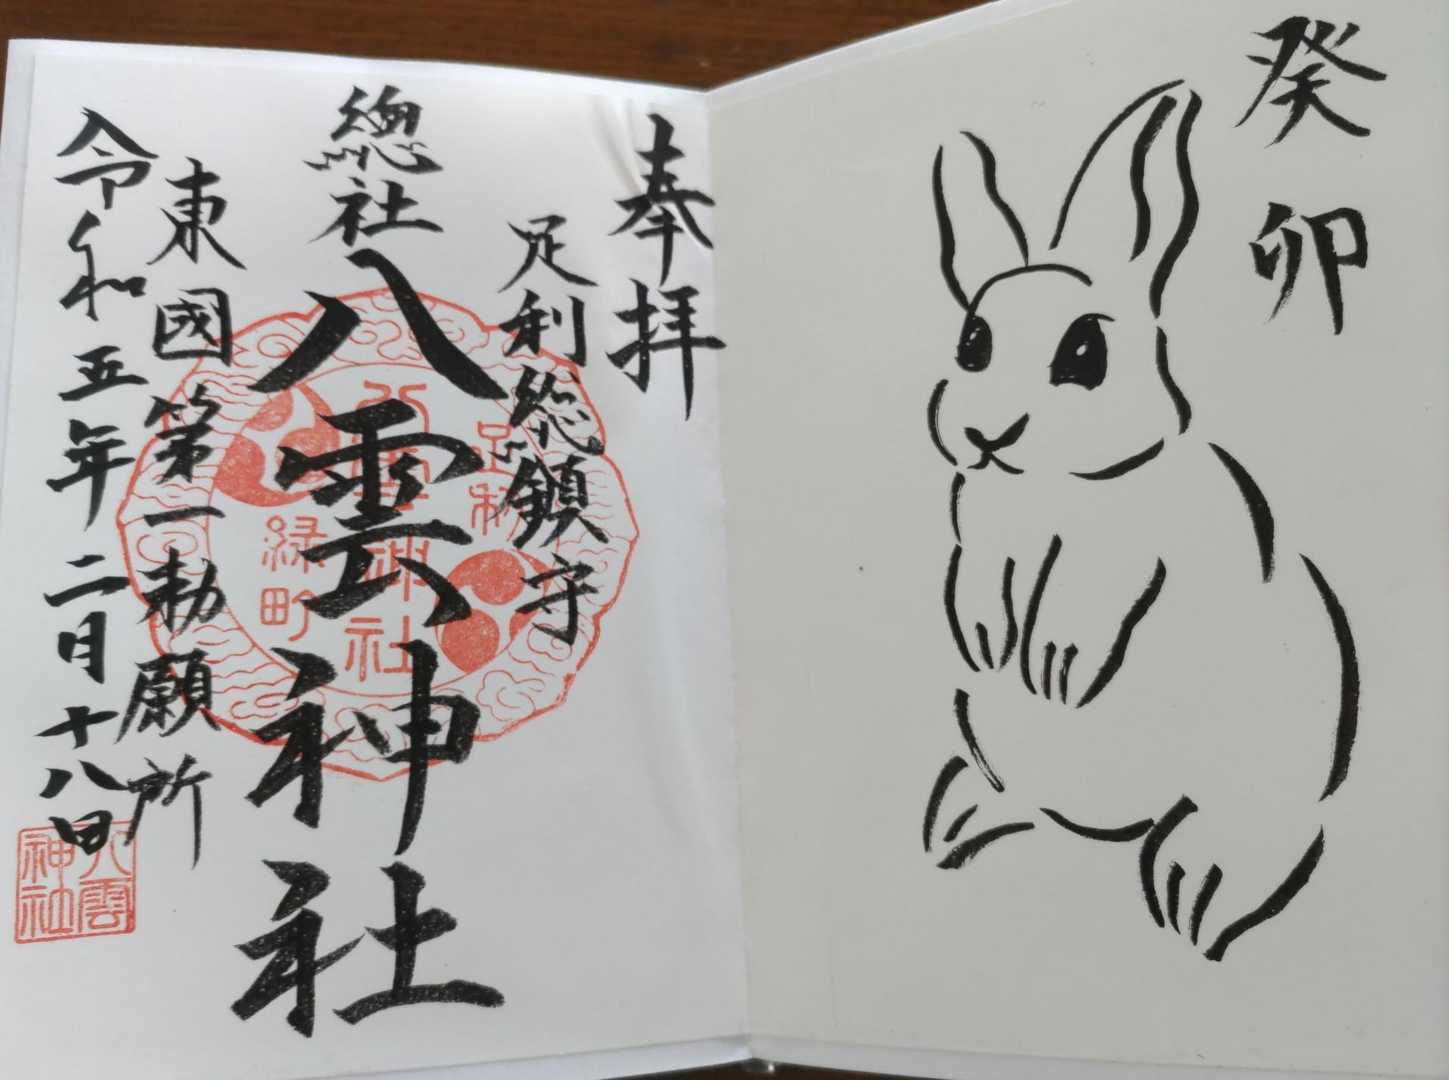 癸卯
奉拝
足利総鎮守
總社
八雲神社
東國第一勅願所
令和五年二月十八日
八雲神社
足利
八雲神社
緑町